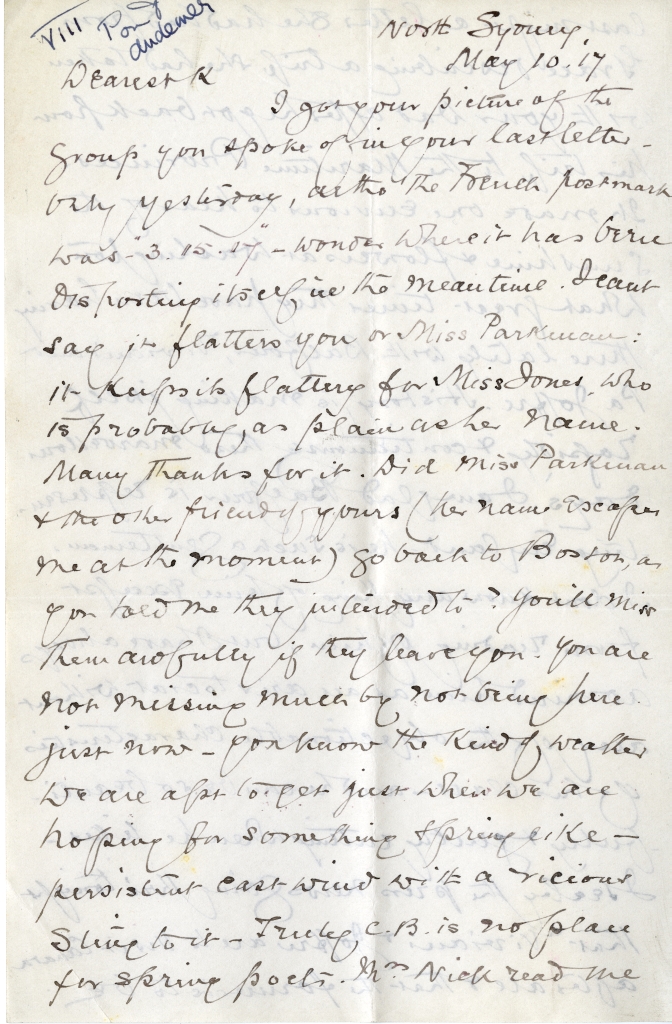 VIII Pont
Audemer
North Sydney,
May 10. 17
Dearest K
I got your picture of the
group you spoke of in your last letter -
only yesterday, altho' the French postmark
was "3.15.17" - wonder where it has been
disporting itself in the meantime. I can't
say it flatters you or Miss Parkman:
it keeps its flattery for Miss Jones, who
is probably as plain as her name.
Many thanks for it. Did Miss Parkman
& the other friend of yours (her name escapes
me at the moment) go back to Boston, as
you told me they intended to? You'll miss
them awfully if they leave you. You are
not missing much by not being here
just now - you know the kind of weather
we are apt to get just when we are
hoping for something springlike -
persistent east wind with a vicious
sting to it - Truly C.B. is no place
for spring poets. Mrs Nick read me